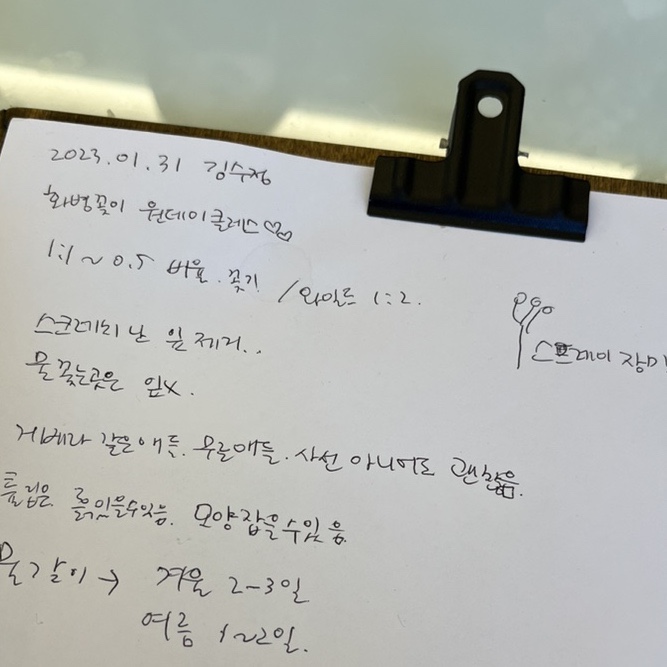 2023.01.31 김수정
화병꽂이 원데이클레스♡♡
1:1 ~ 0.5 비율. 꽂기 / 와일드 1:2.
스프레이 장미
스크래치 난 잎 제거..
물 꽂는곳은 잎x.
게베라 같은애들. 무른애들. 사선 아니어도 괜찮음.
튤립은 흙있을수있음. 모양잡을수있음.
물갈이 → 겨울 2-3일
여름 1~2일.